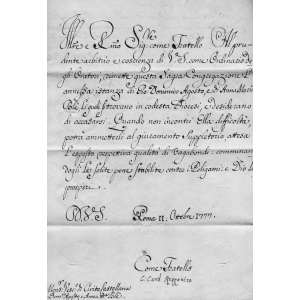 Ill.re e R.mo Sig.r come Fratello. All pru
dente arbitrio e coscienza di V.S. come Ordinario de
gli Oratori, rimette questa Sagra Congregazione l'
annessa istanza di Gio. Domenico Agosto, e di Anna Maria
li quali si trovano in codesta Diocesi, e desiderano
di accasarsi. Quando non incontri Ella difficoltà,
potrà ammetterli al giuramento Suppletorio attesa
l'esposta rispettiva qualità di Vagabondi: comminan
dogli le solite pene stabilite contro i Poligami: e Dio la
prosperi.
D. V. S. Roma 11. Ottobre 1777.
Come Fratello
C. Card. Rezzonico
Mons. Vesc. di Civita Castellana